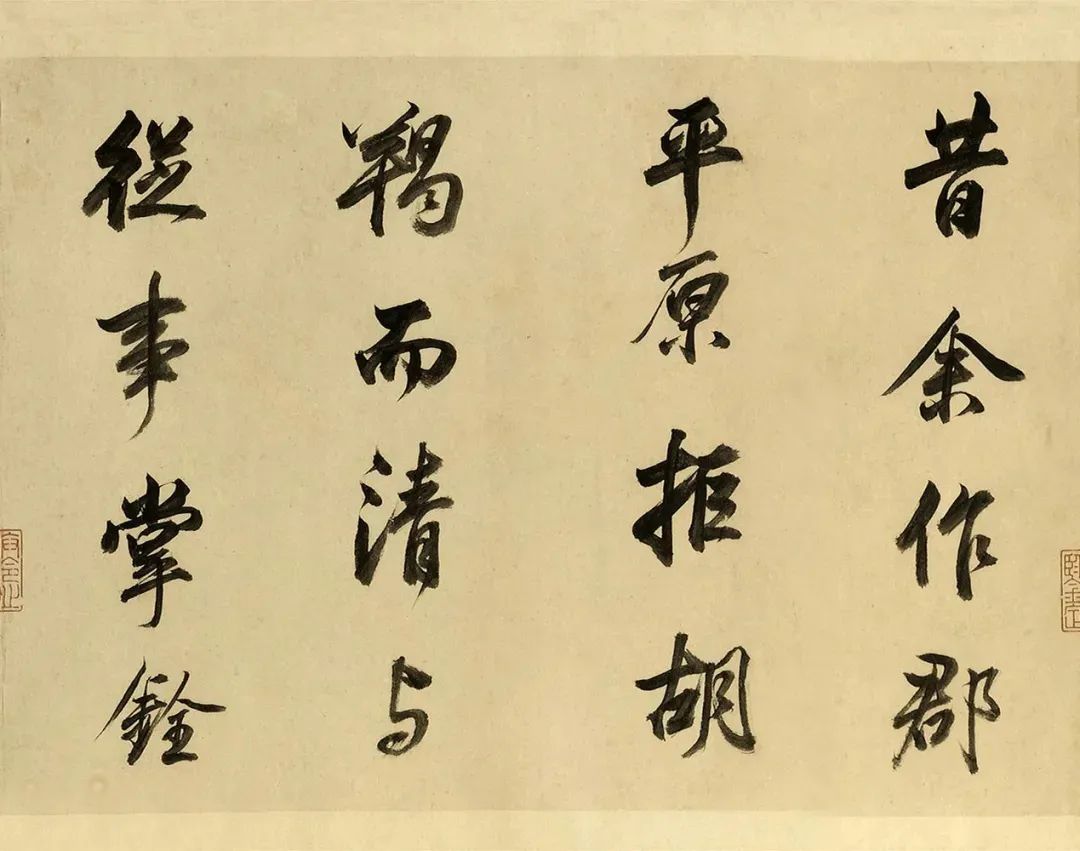 昔余作郡
平原拒胡
羯而清与
從事掌銓